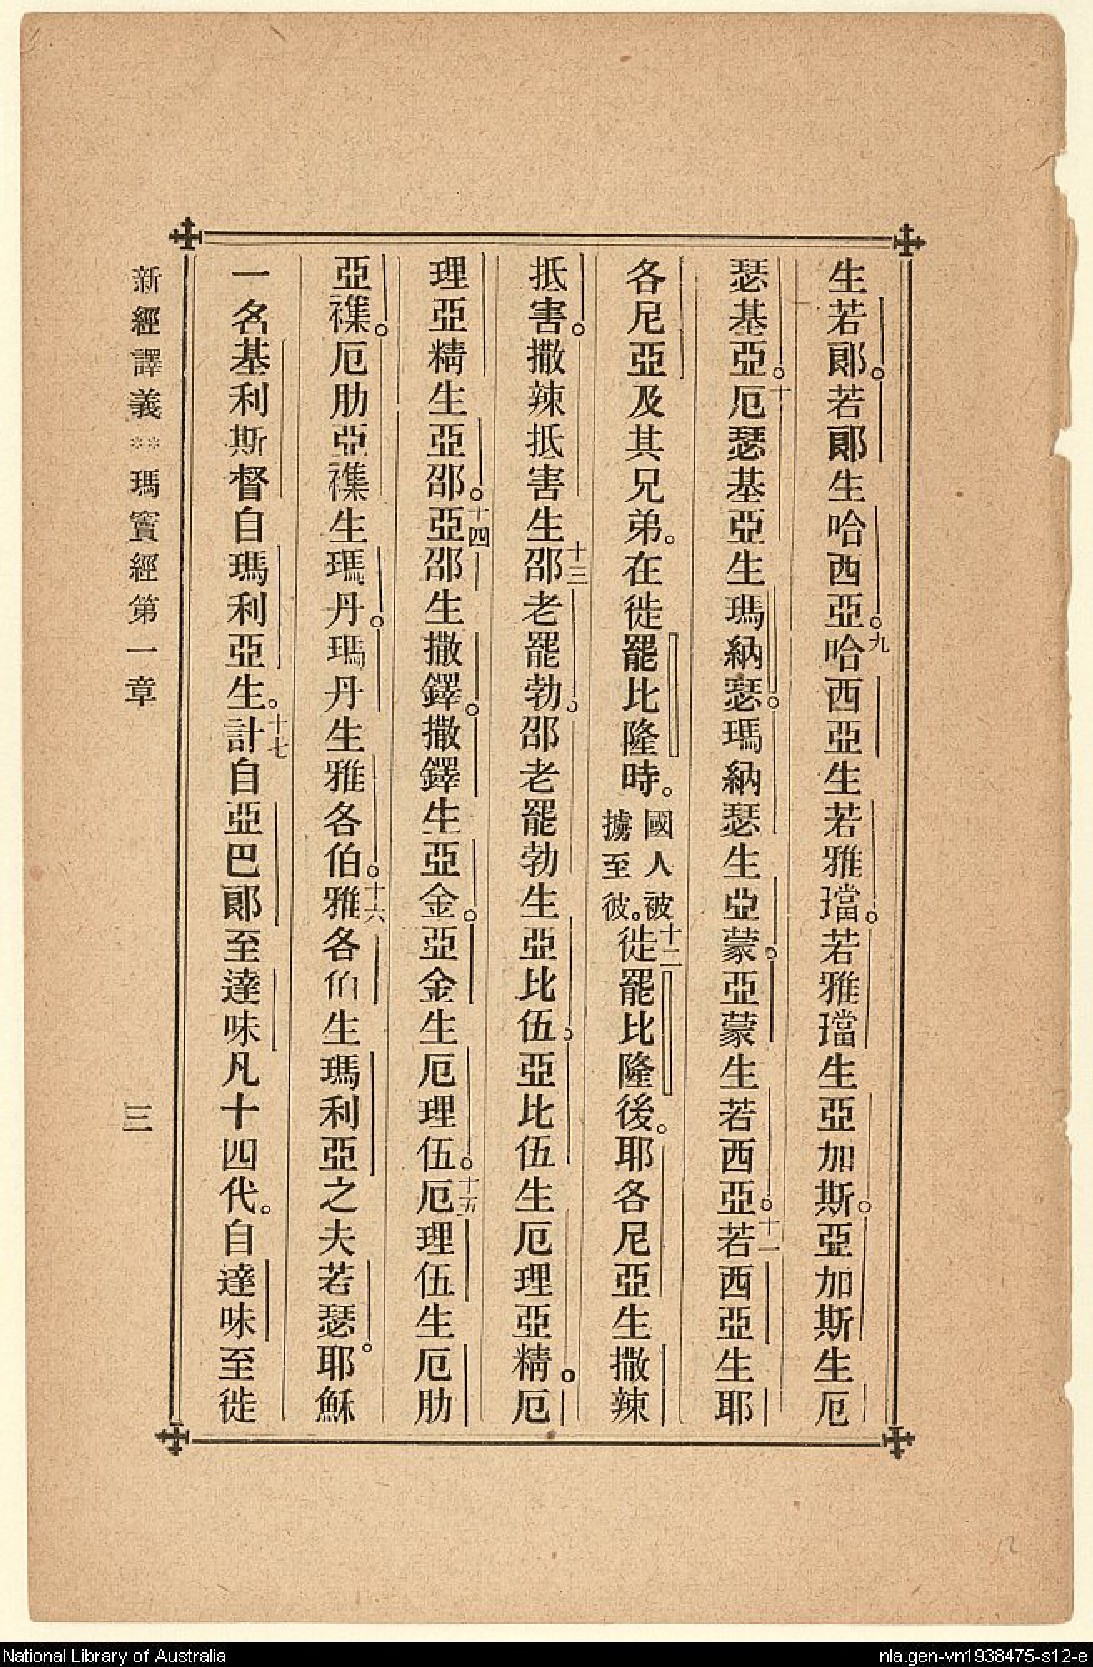 生若郞。若郞生哈西亞。九哈西亞生若雅璫。若雅璫生亞加斯。亞加斯生厄
瑟基亞。十厄瑟基亞生瑪納瑟。瑪納瑟生亞蒙。亞蒙生若西亞。十一若西亞生耶
各尼亞及其兄弟。在徙罷比隆時。國人被擄至彼。十二徙罷比隆後。耶各尼亞生撒辣
抵害。撒辣抵害生十三邵老罷勃。邵老罷勃生亞比伍。亞比伍生厄理亞精。厄
理亞精生亞邵。十四亞邵生撒鐸。撒鐸生亞金。亞金生厄理伍。十五厄理伍生厄肋
亞襍。厄肋亞襍生瑪丹。瑪丹生雅各伯。十六雅各伯生瑪利亞之夫若瑟。耶穌
一名基利斯督自瑪利亞生。十七計自亞巴郞至達味凡十四代。自達味至徙
新經譯義**瑪竇經第一章 三
National Library of Australia
nla.gen-vn1938475-s12-e